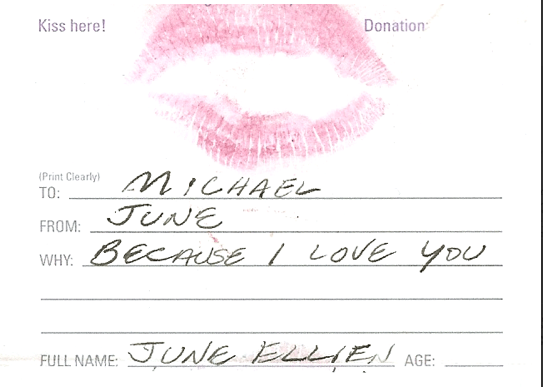 Kiss here! Donation:
(Print Clearly)
TO: MICHAEL
FROM: JUNE
WHY: BECAUSE I LOVE YOU
FULL NAME: JUNE ELLIEN AGE: